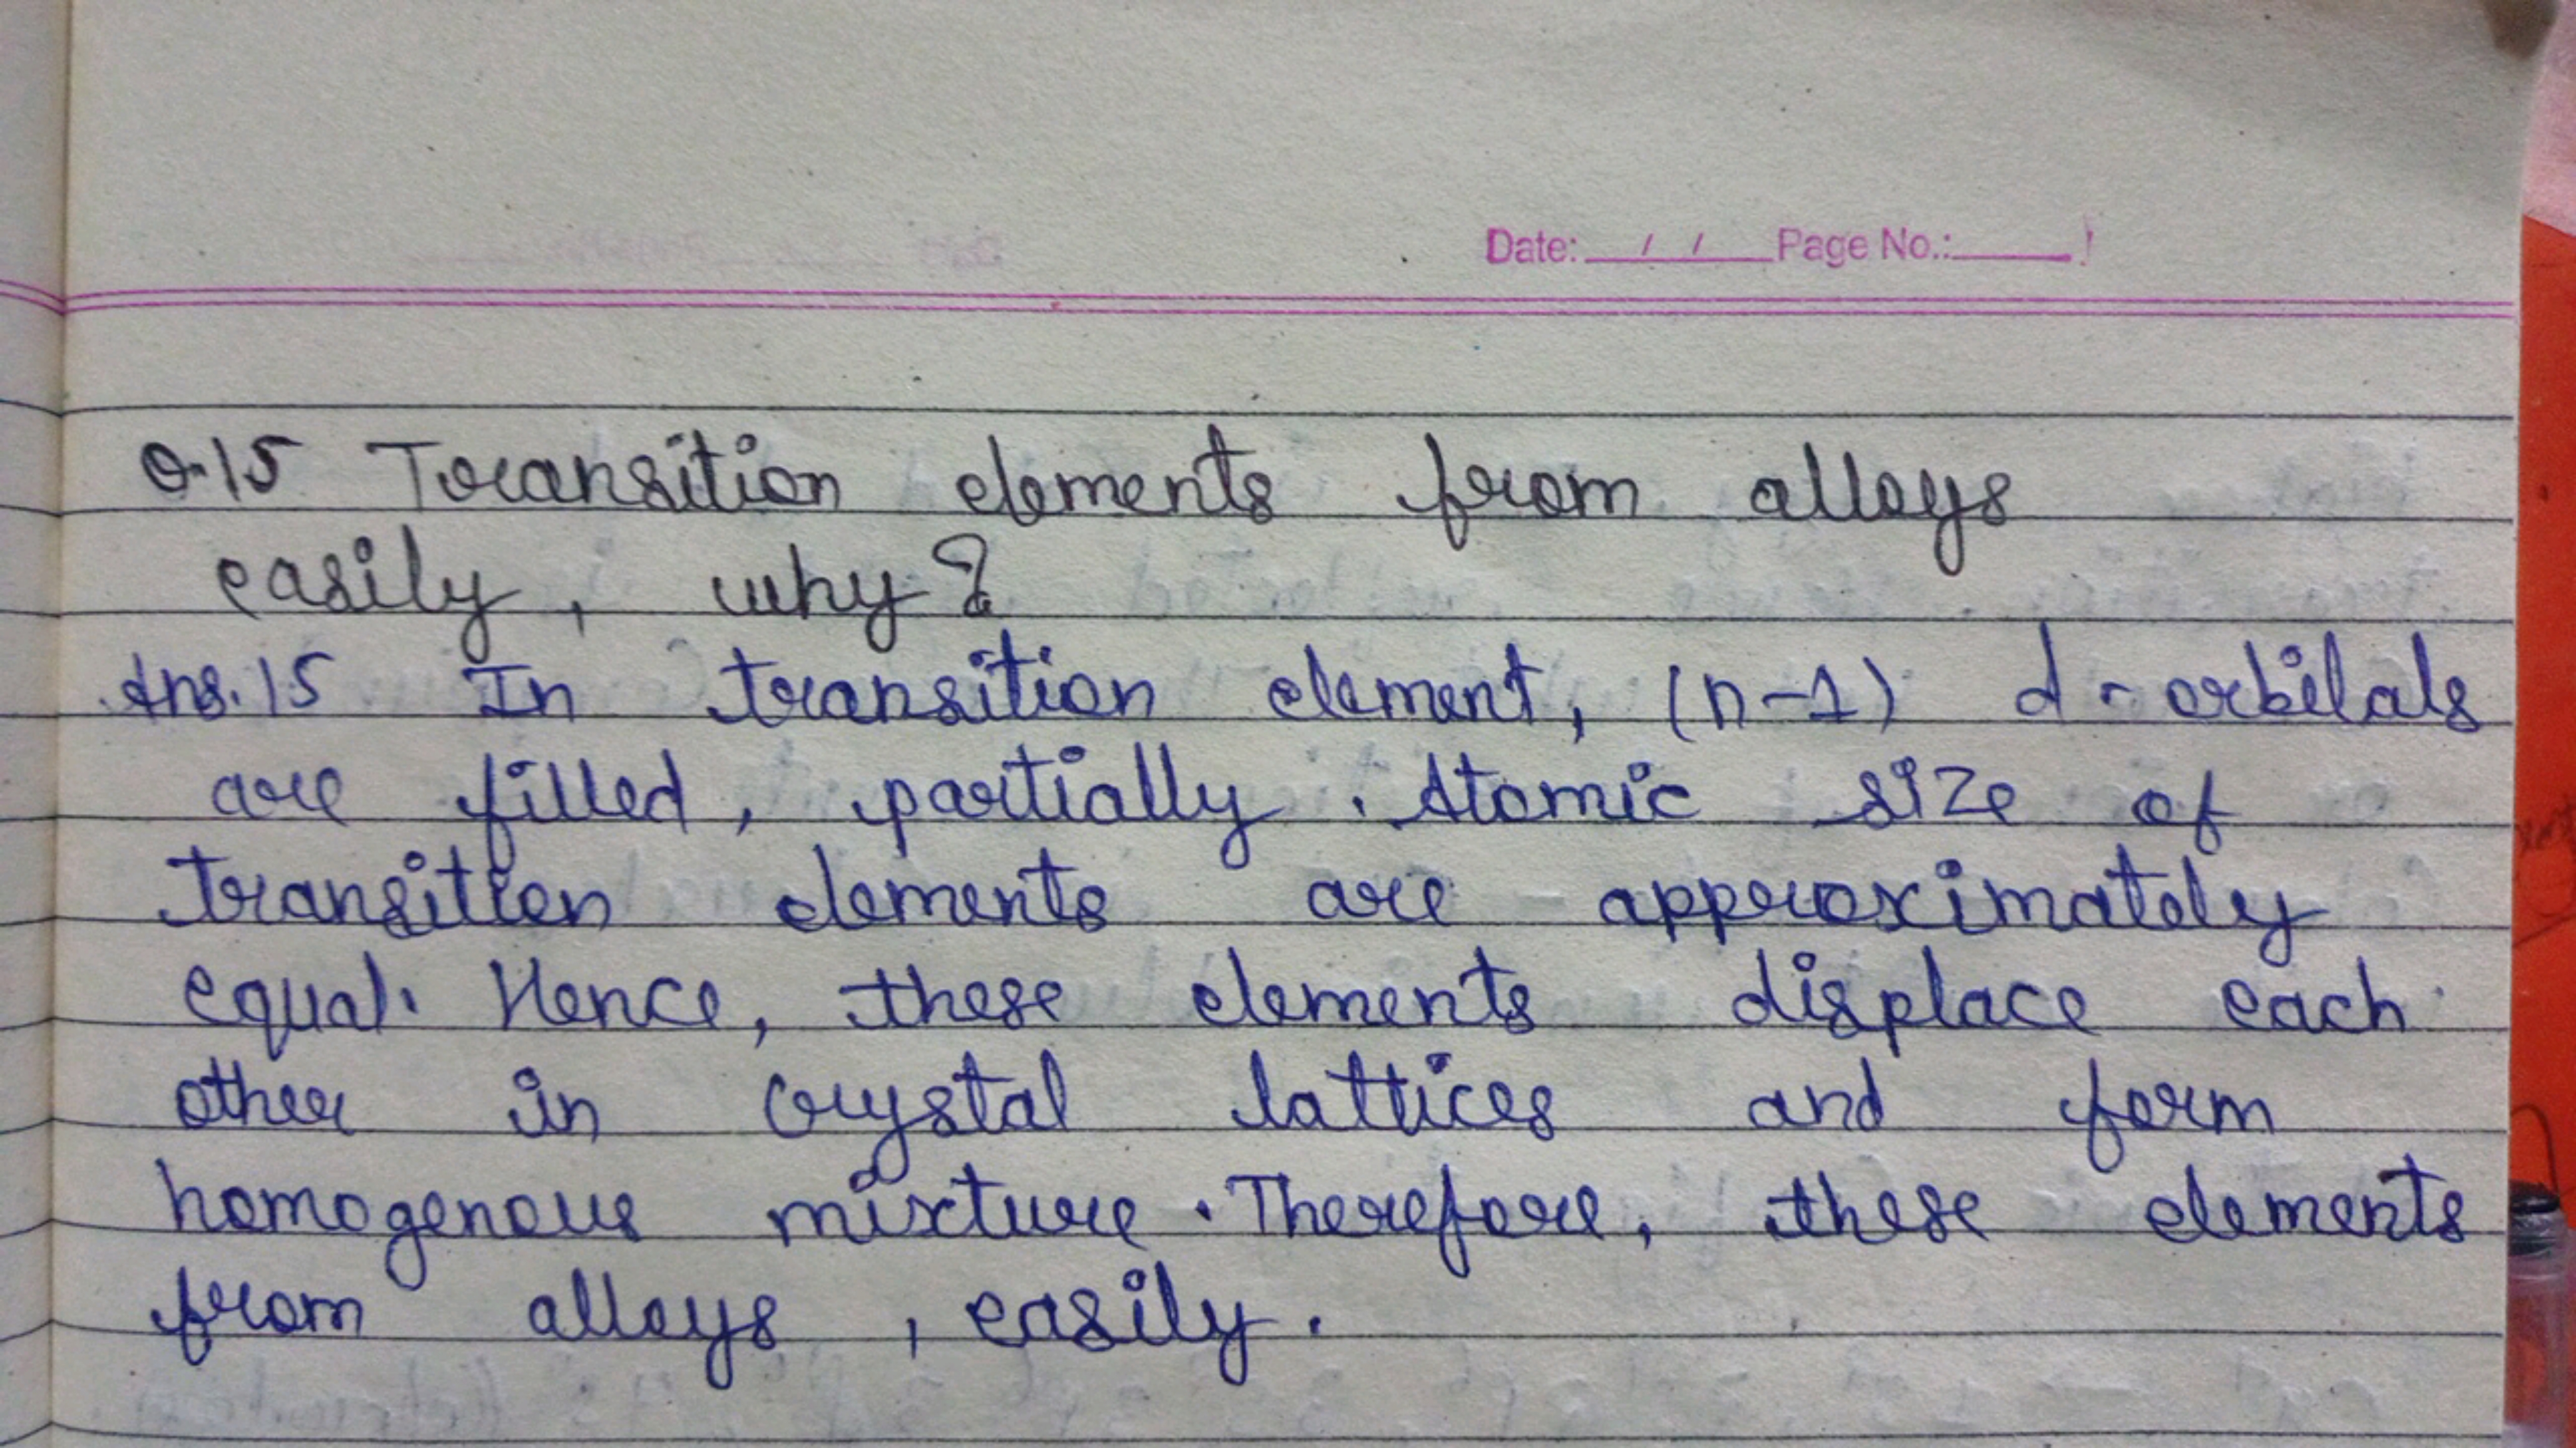 Date: / / Page No.:
Q.15 Transition elements from alloys
easily, why?
Ans.15 In transition element, (n-1) d-orbitals
are filled, partially. Atomic size of
transition elements are approximately
equal. Hence, these elements displace each
other in crystal lattices and form
homogenous mixture. Therefore, these elements
from alloys, easily.